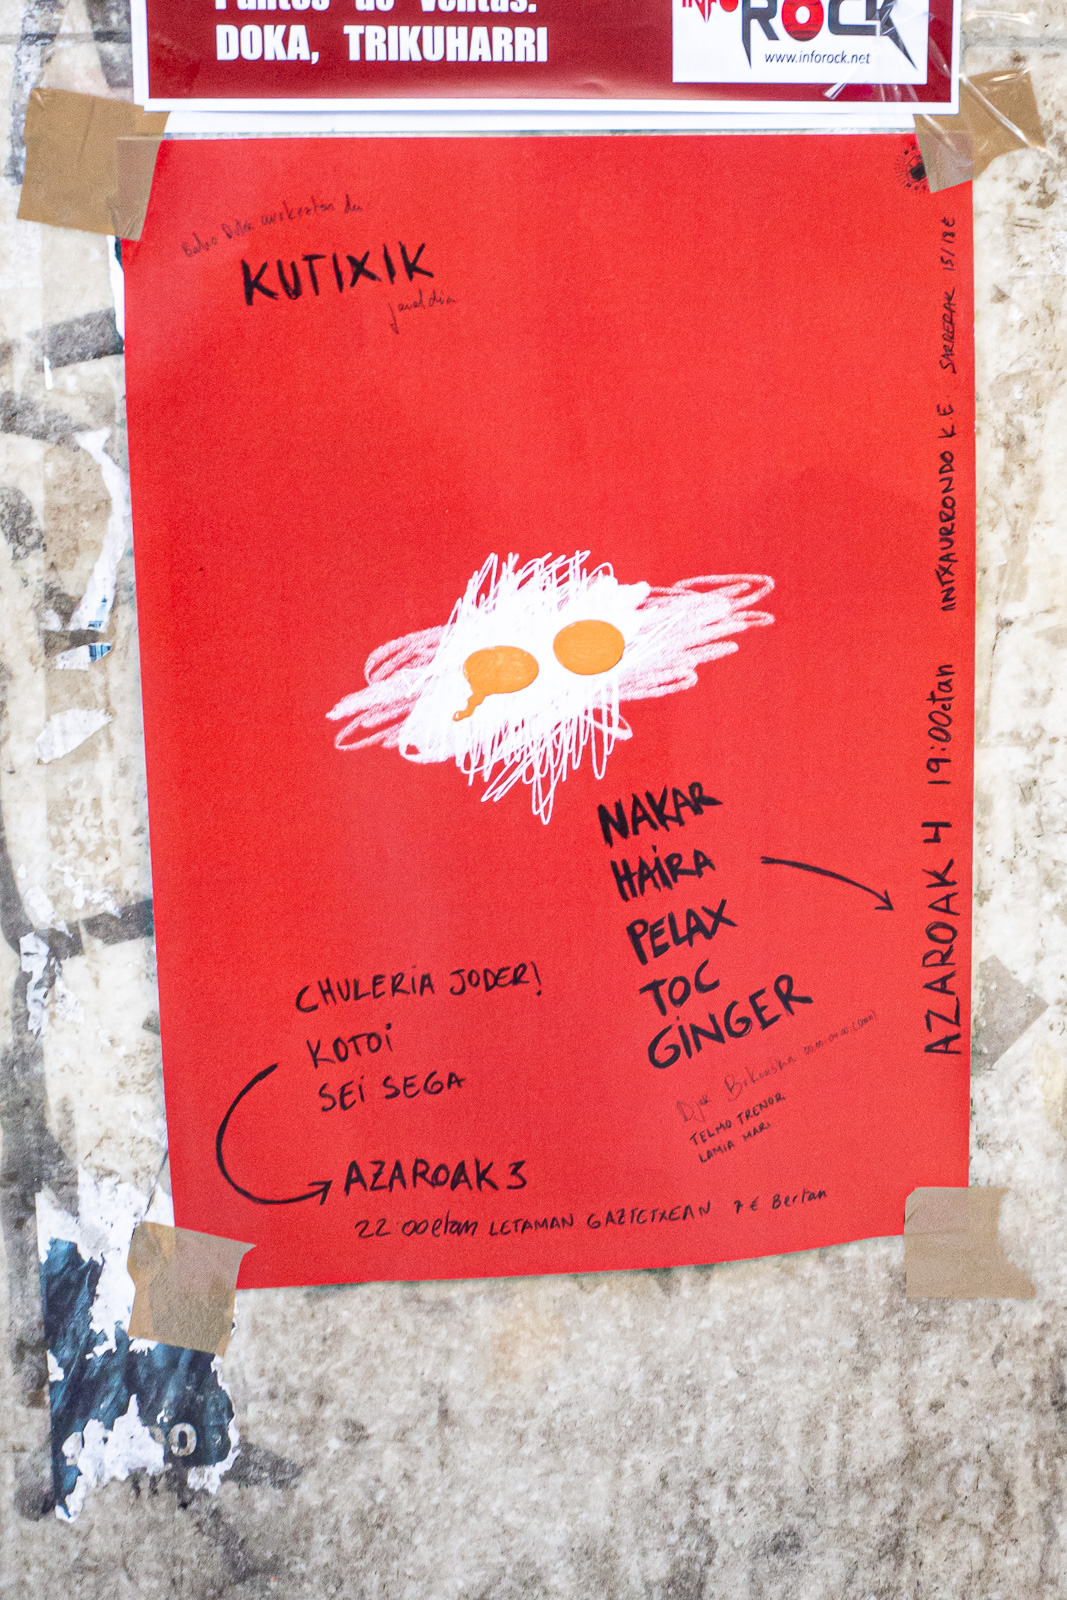 Puntos de ventas:
DOKA, TRIKUHARRI
INFO ROCK
www.inforock.net
aurkezten du
KUTIXIK
jaialdia
NAKAR
HAIRA
PELAX
TOC
GINGER
TELMO TRENOR
LAMIA MARI
AZAROAK 4 19:00etan INTXAURRONDO K.E SARRERAK 15/18€
CHULERIA JODER!
KOTOI
SEI SEGA
AZAROAK 3
22:00etan LETAMAN GAZTETXEAN 7€ Bertan